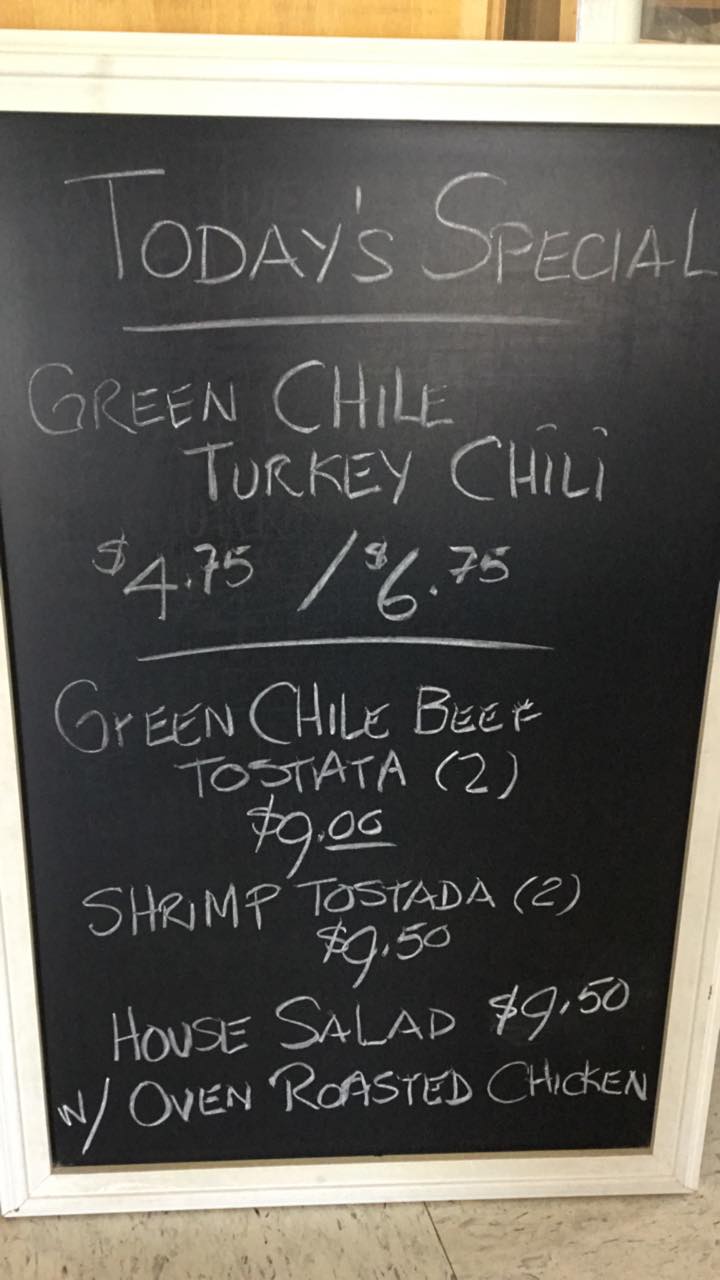 TODAY'S SPECIAL
GREEN CHILE
TURKEY CHILI
$4.75 / $6.75
GREEN CHILE BEEF
TOSTATA (2)
$9.00
SHRIMP TOSTADA (2)
$9.50
HOUSE SALAD $9.50
w/ OVEN ROASTED CHICKEN